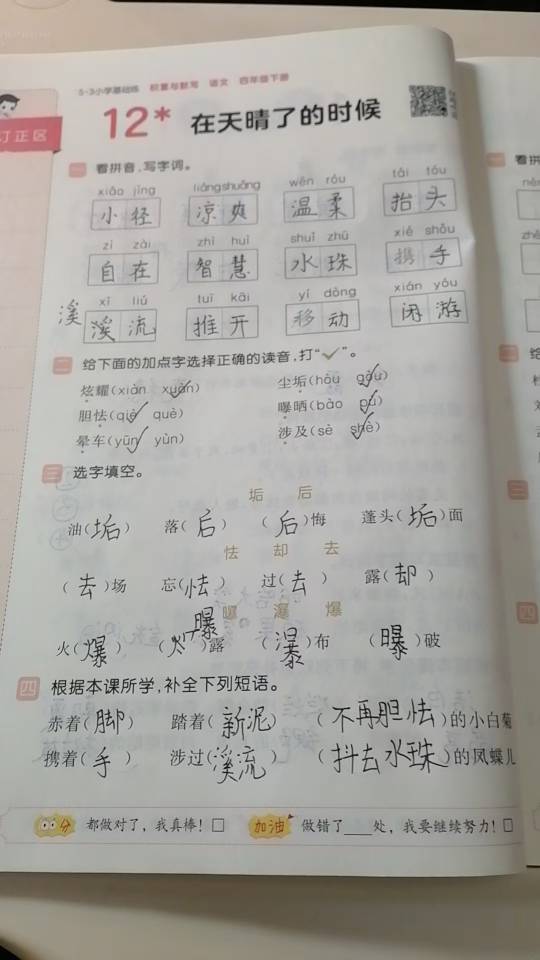 5·3小学基础练 积累与默写 语文 四年级下册
订正区
12* 在天晴了的时候
一 看拼音,写字词。
xiǎo jìng liángshuǎng wēn róu tái tóu
小径 凉爽 温柔 抬头
zì zài zhì huì shuǐ zhū xié shǒu
自在 智慧 水珠 携手
xī liú tuī kāi yí dòng xián yóu
溪 溪流 推开 移动 闲游
二 给下面的加点字选择正确的读音,打“✓”。
炫耀(xiàn xuàn) 尘垢(hòu gòu)
胆怯(qiè què) 曝晒(bào pù)
晕车(yūn yùn) 涉及(sè shè)
三 选字填空。
垢 后
油(垢) 落(后) (后)悔 蓬头(垢)面
怯 却 去
(去)场 忘(怯) 过(去) 露(却)
曝 瀑 爆
曝
火(爆) ( )露 (瀑)布 (曝)破
四 根据本课所学,补全下列短语。
赤着(脚) 踏着(新泥) (不再胆怯)的小白菊
携着(手) 涉过(溪流) (抖去水珠)的凤蝶儿
分 都做对了,我真棒!□ 加油 做错了____处,我要继续努力!□